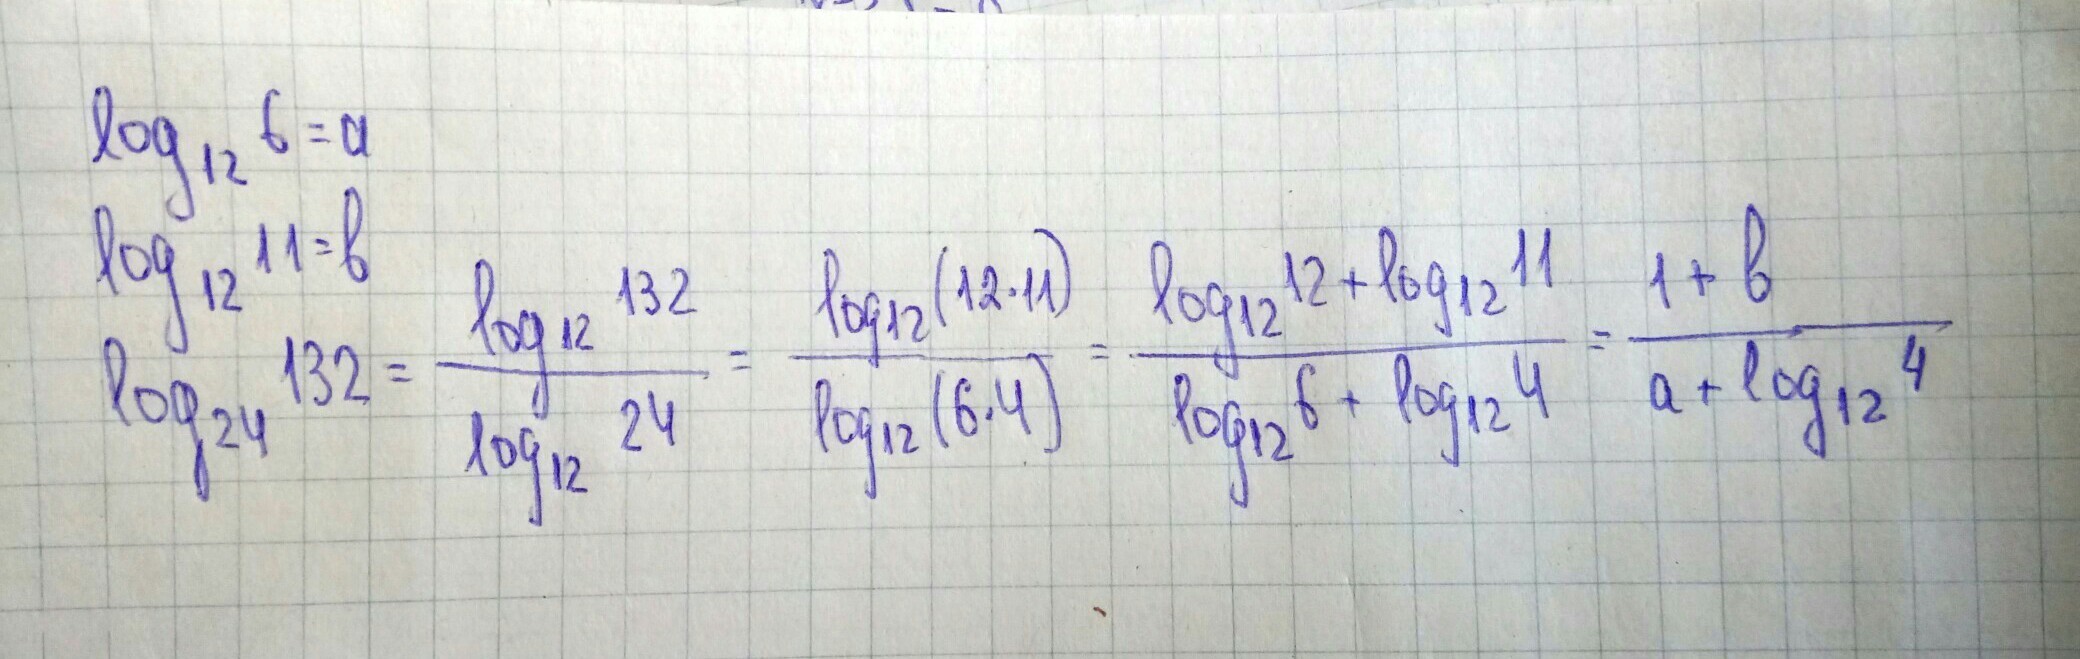 log₁₂ 6 = a
log₁₂ 11 = b
log₂₄ 132 = log₁₂ 132 / log₁₂ 24 = log₁₂(12·11) / log₁₂(6·4) = (log₁₂ 12 + log₁₂ 11) / (log₁₂ 6 + log₁₂ 4) = (1 + b) / (a + log₁₂ 4)